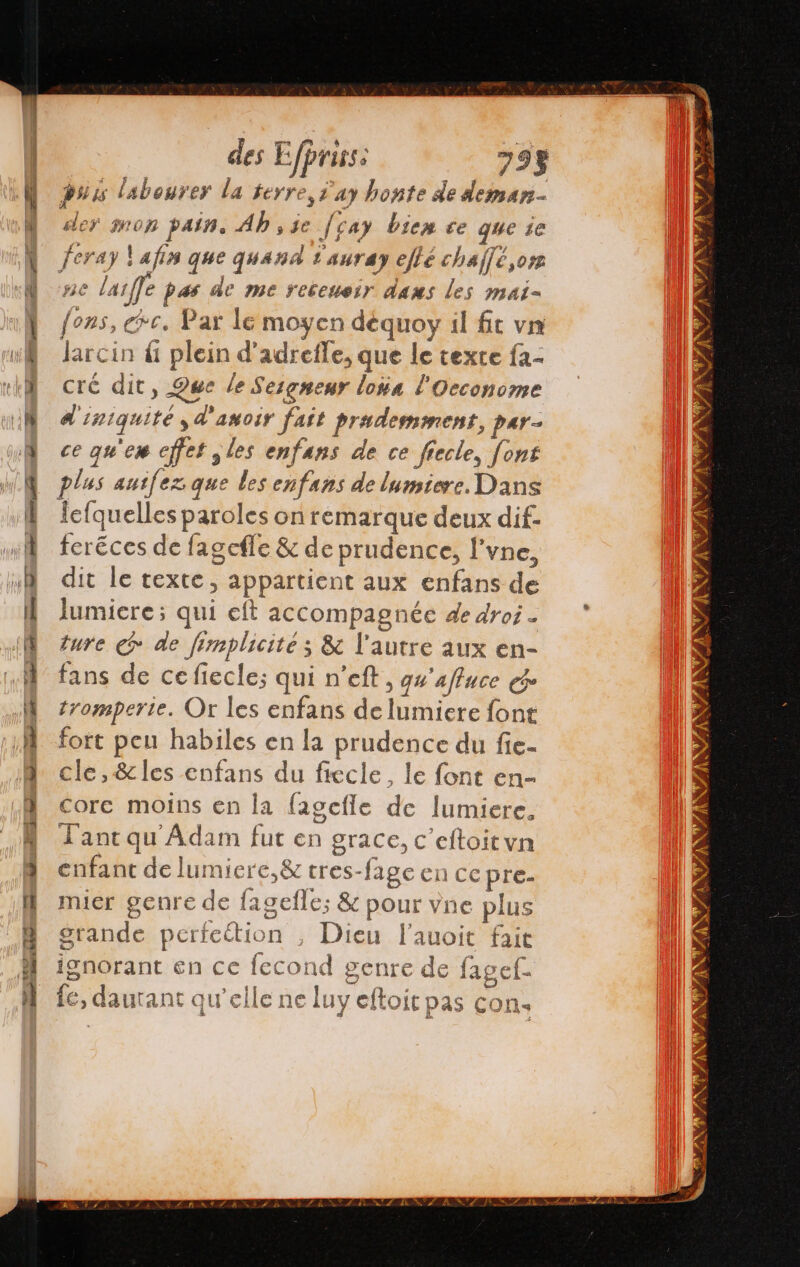 des Eſprits: 795
puis labourer la terre, i'ay honte de deman-
der mon pain. Ah, ie ſçay bien ce que ie
feray! afin que quand i'auray eſté chaſſé, on
ne laiſſe pas de me receuoir dans les mai-
ſons, &c. Par le moyen dequoy il fit vn
larcin ſi plein d'adreſſe, que le texte ſa-
cré dit, Que le Seigneur loüa l'Oeconome
d'iniquité, d'auoir fait prudemment, par-
ce qu'en effet, les enfans de ce ſiecle, ſont
plus auiſez que les enfans de lumiere. Dans
leſquelles paroles on remarque deux dif-
ferẽces de ſageſſe & de prudence, l'vne,
dit le texte, appartient aux enfans de
lumiere; qui eſt accompagnée de droi-
ture & de ſimplicité; & l'autre aux en-
fans de ce ſiecle; qui n'eſt, qu'aſtuce &
tromperie. Or les enfans de lumiere ſont
fort peu habiles en la prudence du ſie-
cle, & les enfans du ſiecle, le ſont en-
core moins en la ſageſſe de lumiere.
Tant qu'Adam fut en grace, c'eſtoit vn
enfant de lumiere, & tres-ſage en ce pre-
mier genre de ſageſſe; & pour vne plus
grande perfection, Dieu l'auoit fait
ignorant en ce ſecond genre de ſageſ-
ſe, dautant qu'elle ne luy eſtoit pas con-